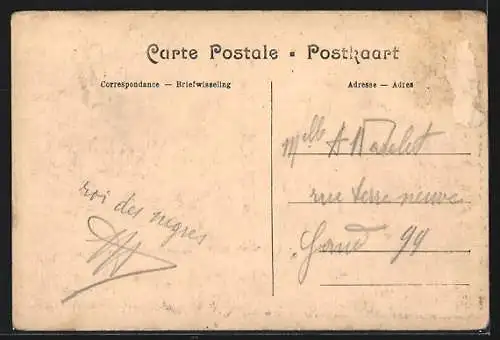 Carte Postale • Postkaart
Correspondance — Briefwisseling
Adresse — Adres
roi des negres
Mlle A
rue terre neuve
Gand 94